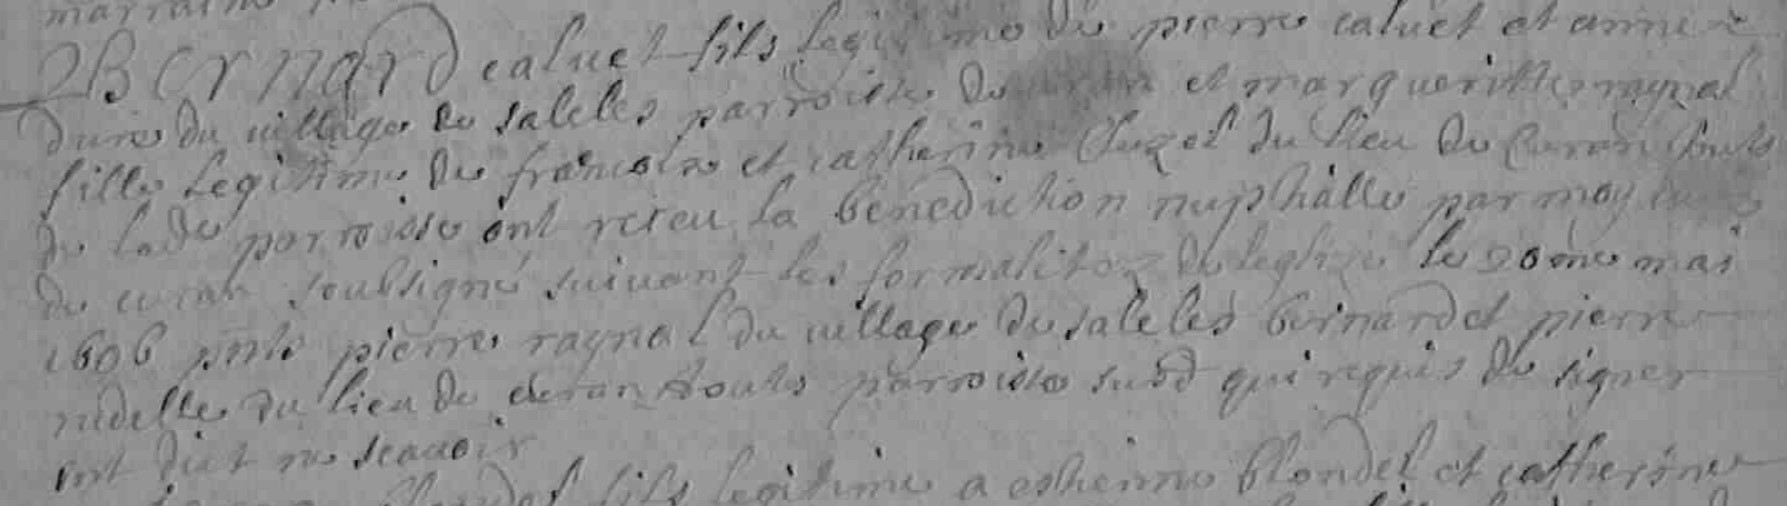 marraine
Bernard caluet fils legitime de pierre caluet et anne
Dure du uillage de saleles parroisse de curan et margueritte raynal
fille legitime de francois et catherine Cluzel du lieu de Curan touts
de lade parroisse ont receu la benediction nuphialle par moy curé
de curan soubsigné suivant les formalitez de leglize le 20me mai
1606 pnts pierre raynal du uillage de saleles bernard et pierre
nidelle du lieu de curan touts parroisse susd qui requis de signer
ont dict ne scauoir
fils legitime a esthienne blondel et catherine